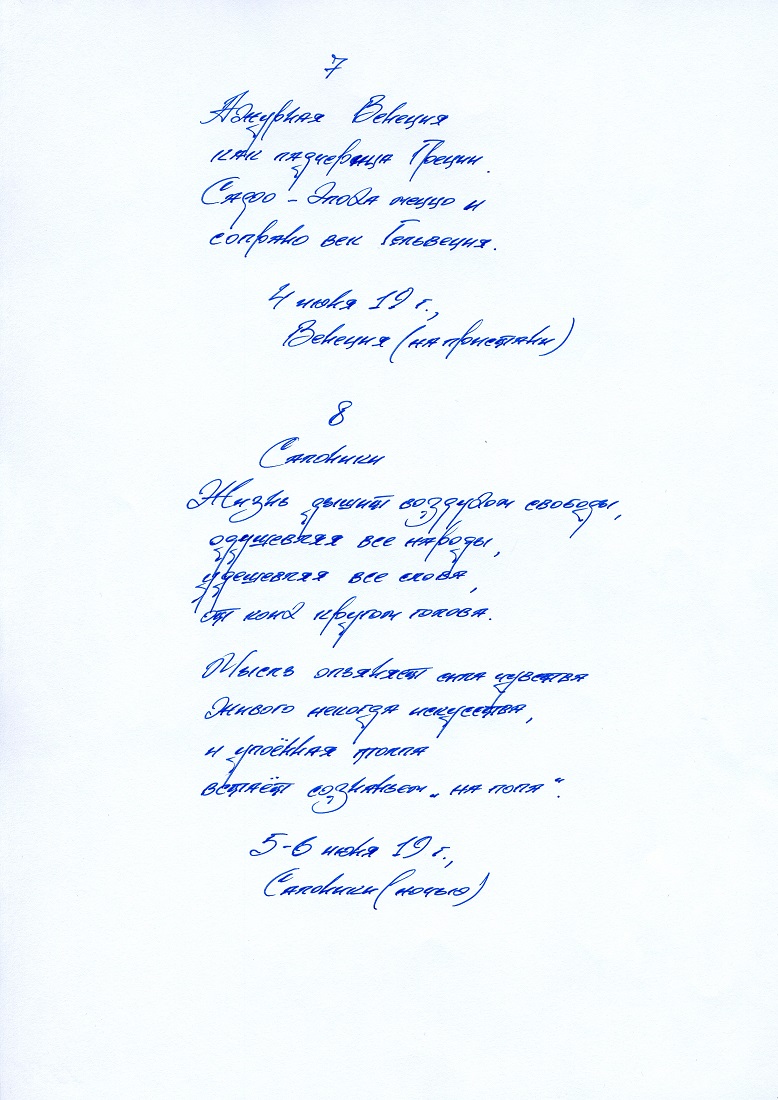 7
Ажурная Венеция
как падчерица Греции.
Сапфо – эпоха меццо и
сопрано век Гельвеция.
4 июня 19 г.,
Венеция (на пристани)
8
Салоники
Жизнь дышит воздухом свободы,
одушевляя все народы,
удешевляя все слова,
от коих кругом голова.
Мысль опьяняет сила чувства
живого некогда искусства,
и упоённая толпа
встаёт сознаньем „на попа“.
5-6 июня 19 г.,
Салоники (ночью)